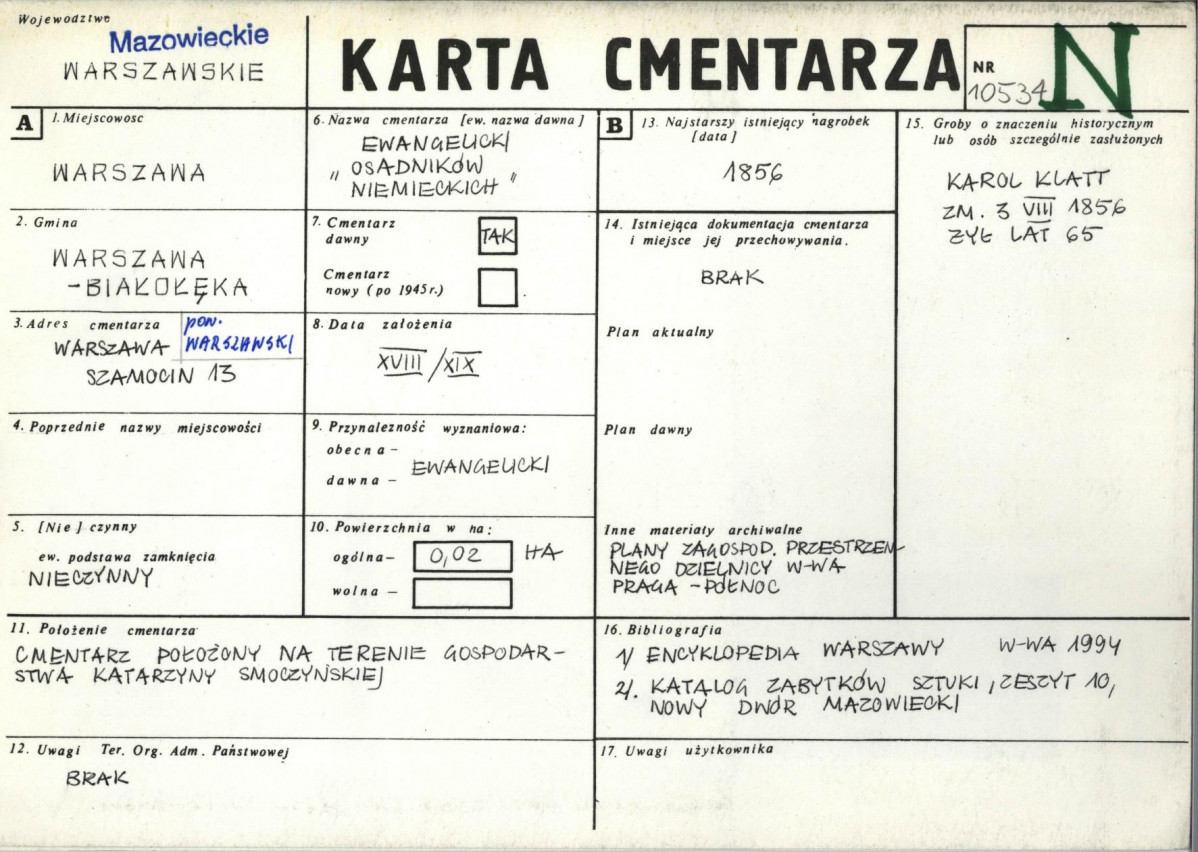 Wojewodztwo
Mazowieckie
WARSZAWSKIE
KARTA CMENTARZA
NR
10534
N
A
1. Miejscowosc
WARSZAWA
2. Gmina
WARSZAWA
-BIAŁOŁĘKA
3. Adres cmentarza
pow.
WARSZAWSKI
WARSZAWA
SZAMOCIN 13
4. Poprzednie nazwy miejscowości
5. [Nie] czynny
ew. podstawa zamknięcia
NIECZYNNY
6. Nazwa cmentarza [ew. nazwa dawna]
EWANGELICKI
"OSADNIKÓW
NIEMIECKICH"
7. Cmentarz
dawny
TAK
Cmentarz
nowy (po 1945r.)
8. Data założenia
XVIII/XIX
9. Przynależność wyznaniowa:
obecna-
EWANGELICKI
dawna -
10. Powierzchnia w ha:
ogólna- 0,02 HA
wolna -
B
13. Najstarszy istniejący nagrobek
[data]
1856
14. Istniejąca dokumentacja cmentarza
i miejsce jej przechowywania.
BRAK
Plan aktualny
Plan dawny
Inne materiały archiwalne
PLANY ZAGOSPOD. PRZESTRZEN-
NEGO DZIELNICY W-WA
PRAGA - PÓŁNOC
15. Groby o znaczeniu historycznym
lub osób szczególnie zasłużonych
KAROL KLATT
ZM. 3 VIII 1856
ŻYŁ LAT 65
11. Położenie cmentarza
CMENTARZ POŁOŻONY NA TERENIE GOSPODAR-
STWA KATARZYNY SMOCZYŃSKIEJ
12. Uwagi Ter. Org. Adm. Państwowej
BRAK
16. Bibliografia
1/ ENCYKLOPEDIA WARSZAWY W-WA 1994
2/. KATALOG ZABYTKÓW SZTUKI, ZESZYT 10,
NOWY DWÓR MAZOWIECKI
17. Uwagi użytkownika